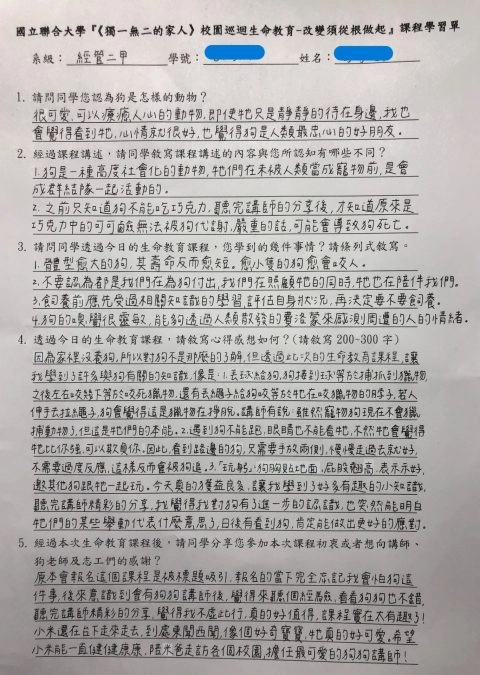 國立聯合大學『《獨一無二的家人》校園巡迴生命教育-改變須從根做起』課程學習單
系級： 經管二甲 學號： 姓名：
1. 請問同學您認為狗是怎樣的動物？
很可愛，可以療癒人心的動物，即便牠只是靜靜的待在身邊，我也
會覺得看到牠，心情就很好，也覺得狗是人類最忠心的好朋友。
2. 經過課程講述，請同學敘寫課程講述的內容與您所認知有哪些不同？
1. 狗是一種高度社會化的動物，牠們在未被人類當成寵物前，是會
成群結隊一起活動的。
2. 之前只知道狗不能吃巧克力，聽完講師的分享後，才知道原來是
巧克力中的可可鹼無法被狗代謝，嚴重的話，可能會導致狗死亡。
3. 請問同學透過今日的生命教育課程，您學到的幾件事情？請條列式敘寫。
1. 體型愈大的狗，其壽命反而愈短。愈小隻的狗愈會咬人。
2. 不要認為都是我們在為狗付出，我們在照顧牠的同時，牠也在陪伴我們。
3. 飼養前應先受過相關知識的學習，評估自身狀況，再決定要不要飼養。
4. 狗的嗅覺很靈敏，能夠透過人類散發的費洛蒙來感測周遭的人的情緒。
4. 透過今日的生命教育課程，請敘寫心得感想如何？(請敘寫 200~300 字)
因為家裡沒養狗，所以對狗不是那麼的了解，但透過此次的生命教育課程，讓
我學到了許多與狗有關的知識，像是：1. 丟球給狗，狗接到球等於捕抓到獵物，
之後在在咬絨下等於咬死獵物，還有丟繩子給狗咬等於牠在咬獵物的脖子，若人
伸手去拉繩子，狗會覺得這是獵物在掙脫。講師有說：雖然寵物狗現在不會獵
捕動物了，但這是牠們的本能。2. 遇到狗不能跑，眼睛也不能看牠，不然牠會覺得
牠比你強，可以欺負你。因此，看到路邊的狗，只需要手放兩側，慢慢走過去就好，
不需要過度反應，這樣反而會被狗追。3.「玩躬」：狗胸貼地面，屁股翹高，表示示好，
邀其他狗跟牠一起玩。今天真的獲益良多，讓我學到了好多有趣的小知識，
聽完講師精彩的分享，我覺得我對狗有了進一步的認識，也突然能明白
牠們的某些舉動代表什麼意思了，日後有看到狗，肯定能做出更好的應對。
5. 經過本次生命教育課程後，請同學分享您參加本次課程初衷或者想向講師、
狗老師及志工們的感謝？
原本會報名這個課程是被標題吸引，報名的當下完全忘記我會怕狗這
件事，後來意識到會有狗狗講師，覺得來聽個經驗，看看狗狗也不錯，
聽完講師精彩的分享，覺得我不虛此行，真的好值得，課程實在太有趣了！
小米還在台下走來走去，到處東聞西聞，像個好奇寶寶，牠真的好可愛。希望
小米能一直健健康康，陪米爸走訪各個校園，擔任最可愛的狗狗講師！